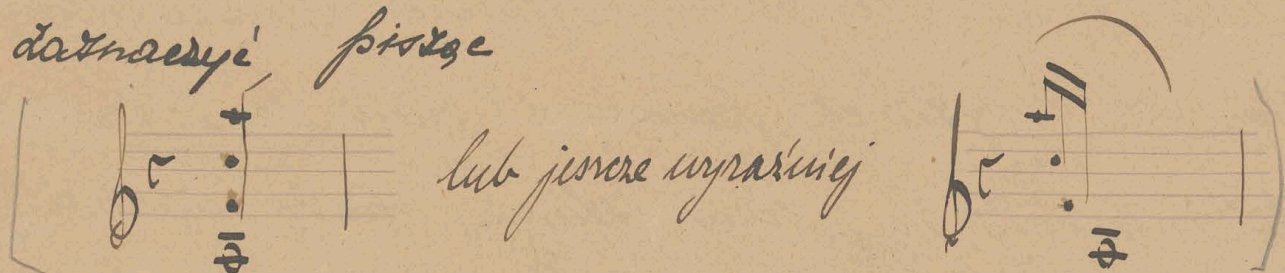 zaznaczyć, pisząc
lub jeszcze wyraźniej